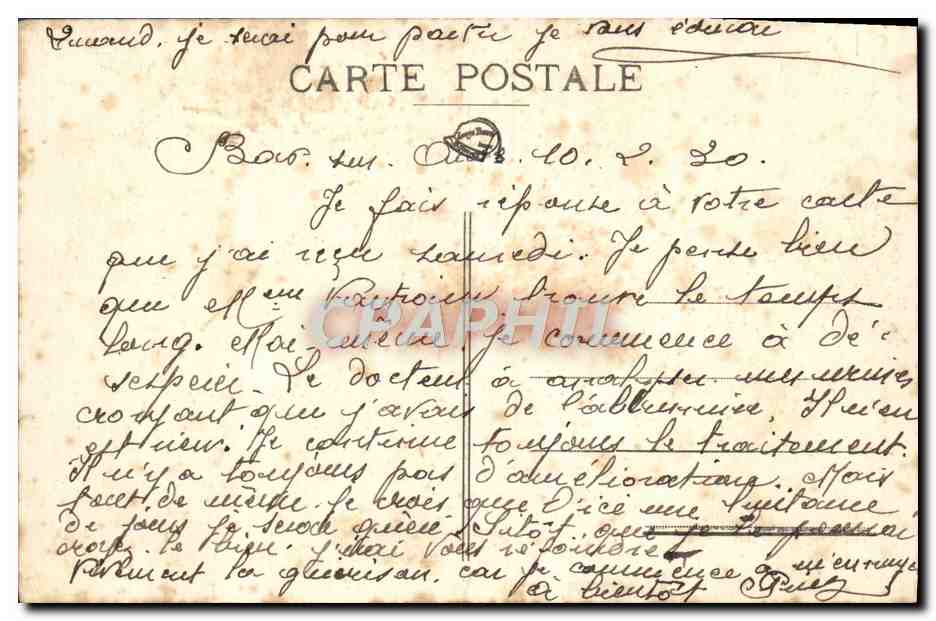 quand je serai pour partir je vous écrirai
CARTE POSTALE
Bar. sur. 10. 2. 30.
Je fais réponse à votre carte
que j'ai reçu samedi. Je pense bien
que Mme trouve le temps
long. Moi-même je commence à dé-
sespérer. Le docteur à analyser mes urines
croyant que j'avais de l'albumine. Il n'en
est rien. Je continue toujours le traitement.
Il n'y a toujours pas d'amélioration. Mais
tout de même je crois que d'ici une
de jours je serai guéri. Sitôt que je le
croyez le bien j'irai vous rejoindre
vivement la guérison, car je commence à m'ennuyer
à bientôt
CPAPHIL